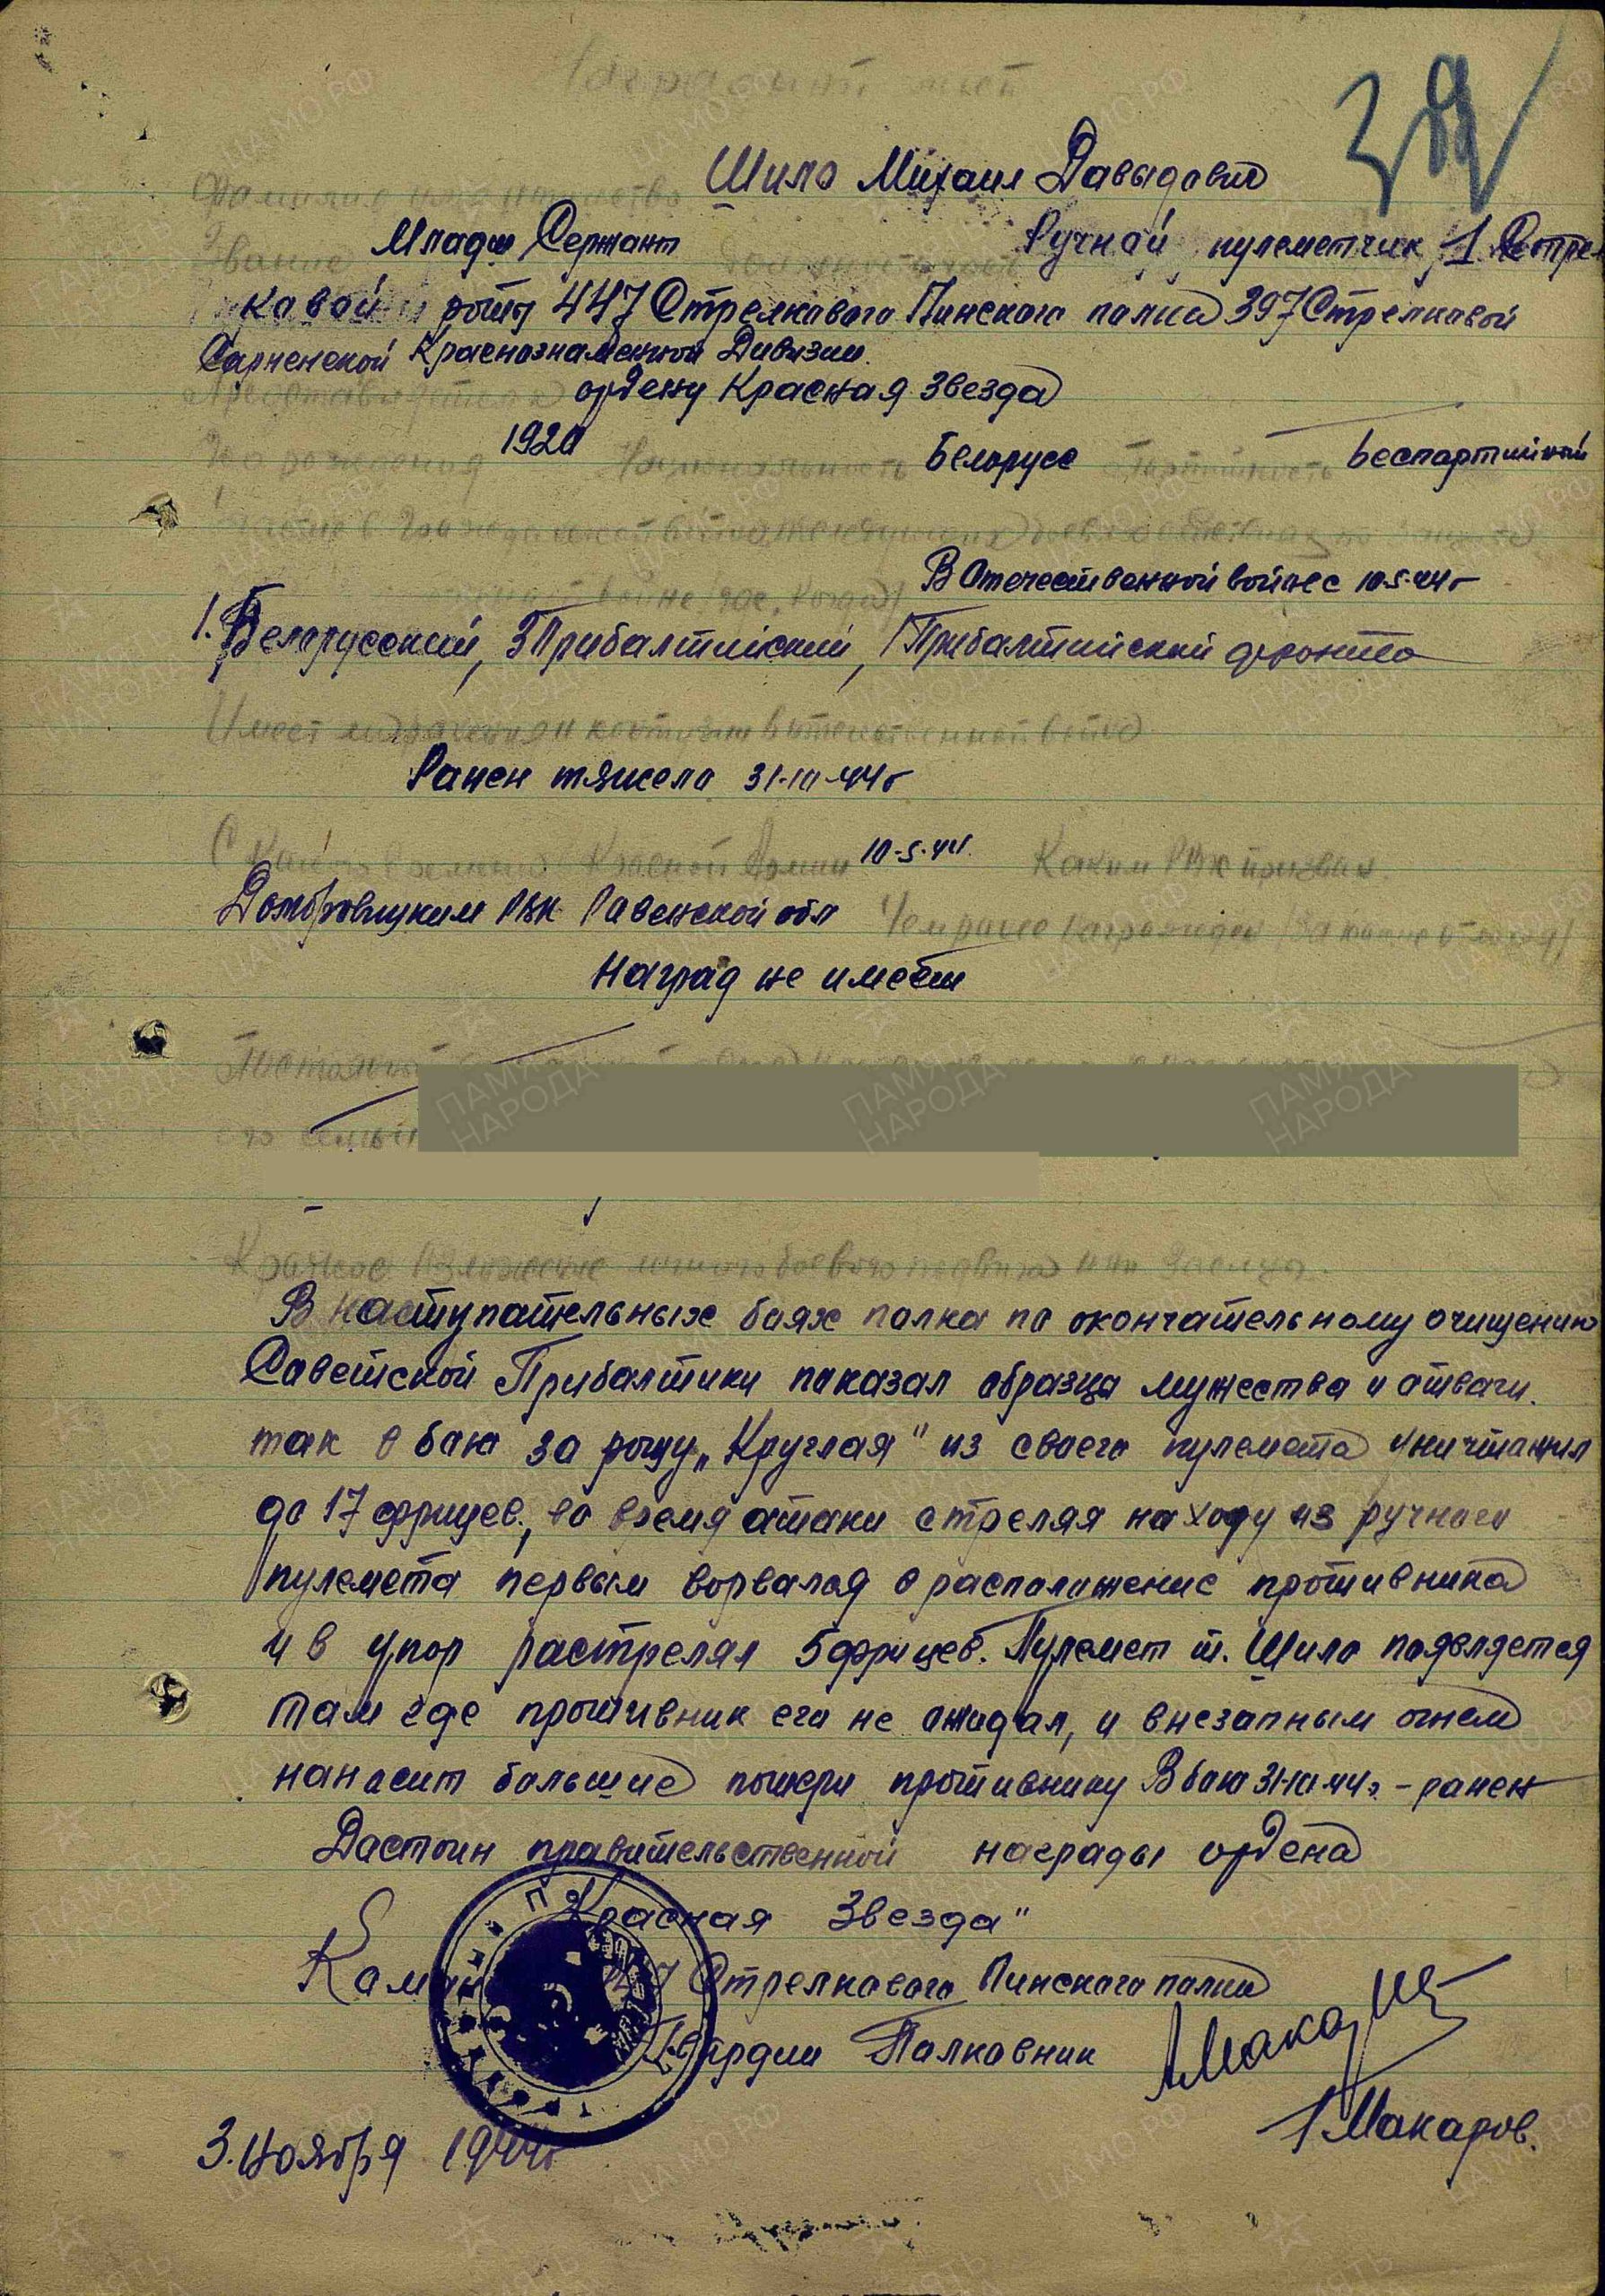 Наградной лист
39
Фамилия имя и отчество Шило Михаил Давыдович
Звание Младш Сержант Ручной пулеметчик 1 Стрел
ковой роты 447 Стрелкового Пинского полка 397 Стрелковой
Сарненской Краснознаменной Дивизии.
Представляется к ордену Красная Звезда
Год рождения 1920 Национальность Белорусс Партийность беспартийный
В Отечественной войне с 10.5.44 г
войне (где, когда)
1. Белорусский, 3 Прибалтийский, 1 Прибалтийский фронта
Имеет ли ранения и контузии в отечественной войне
Ранен тяжело 31-10-44 г
С какого времени в Красной Армии 10-5-44. Каким РВК призван.
Домбровицким РВК Ровенской обл Чем ранее награжден (за какие отличия)
Наград не имеет
Постоянный
его семьи
Краткое изложение личного боевого подвига или заслуг.
В наступательных боях полка по окончательному очищению
Советской Прибалтики показал образца мужества и отваги.
так в бою за рощу „Круглая" из своего пулемета уничтожил
до 17 фрицев., во время атаки стреляя на ходу из ручного
пулемета первым ворвался в расположение противника
и в упор растрелял 5 фрицев. Пулемет т. Шило появляется
там где противник его не ожидал, и внезапным огнем
наносит большие потери противнику В бою 31-10 44 г. - ранен
Достоин правительственной награды ордена
Красная Звезда"
Коман 447 Стрелкового Пинского полка
Гвардии Полковник
/Макаров.
3. ноября 1944 г